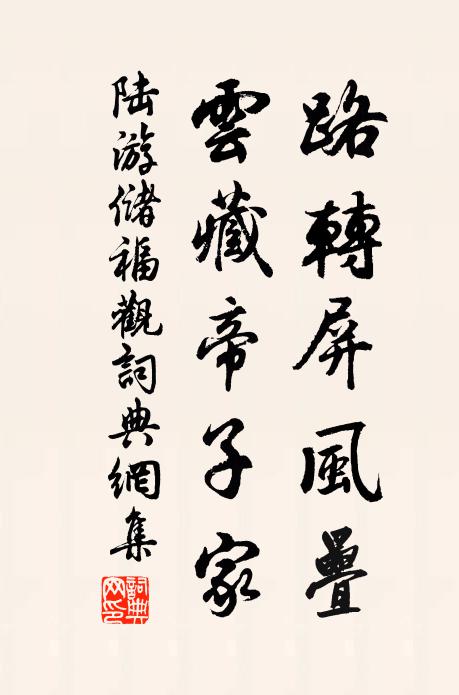 路轉屏風疊
雲藏帝子家
陸游儲福觀詞典網集
詞典網印